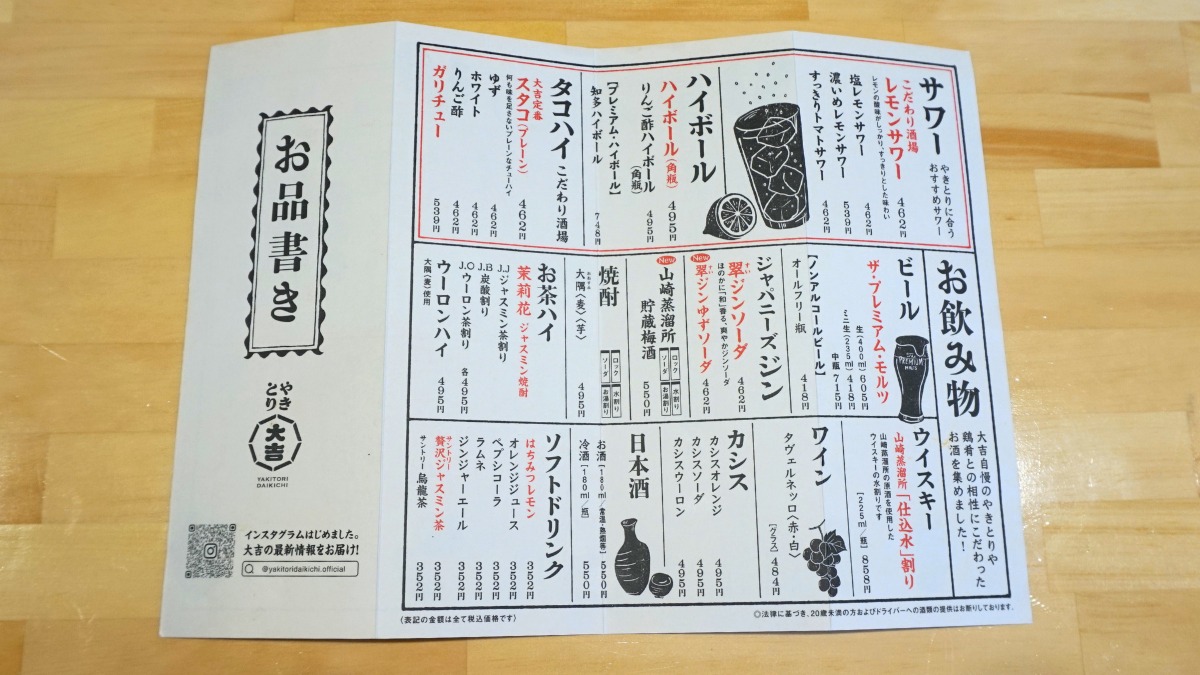 お飲み物
大吉自慢のやきとりや
鶏肴との相性にこだわった
お酒を集めました！
サワー
やきとりに合う
おすすめサワー
こだわり酒場
レモンサワー 462円
レモンの酸味がしっかり、すっきりとした味わい
塩レモンサワー 462円
濃いめレモンサワー 539円
すっきりトマトサワー 462円
ハイボール
ハイボール(角瓶) 495円
りんご酢ハイボール(角瓶) 495円
【プレミアム・ハイボール】
知多ハイボール 748円
タコハイ こだわり酒場
大吉定番
スタコ(プレーン) 462円
何も味を足さないプレーンなチューハイ
ゆず 462円
ホワイト 462円
りんご酢 462円
ガリチュー 539円
ビール
PREMIUM
MALT'S
ザ・プレミアム・モルツ
生(400ml) 605円
ミニ生(235ml) 418円
中瓶 715円
【ノンアルコールビール】
オールフリー瓶 418円
ジャパニーズジン
翠ジンソーダ 462円
すい
ほのかに「和」香る、爽やかジンソーダ
New
翠ジンゆずソーダ 462円
すい
New
山崎蒸溜所
貯蔵梅酒 550円
ロック
水割り
ソーダ
お湯割り
焼酎
ロック
水割り
ソーダ
お湯割り
おおすみ
大隅〈麦〉〈芋〉 495円
お茶ハイ
茉莉花 ジャスミン焼酎
J.J ジャスミン茶割り
J.B 炭酸割り
J.O ウーロン茶割り 各495円
ウーロンハイ 495円
大隅〈麦〉使用
ウイスキー
山崎蒸溜所「仕込水」割り
山崎蒸溜所の原酒を使用した
ウイスキーの水割りです
[225ml/瓶] 858円
ワイン
タヴェルネッロ〈赤・白〉
[グラス] 484円
カシス
カシスオレンジ 495円
カシスソーダ 495円
カシスウーロン 495円
日本酒
お酒 [180ml/常温・熱燗等] 550円
冷酒 [180ml/瓶] 550円
ソフトドリンク
はちみつレモン 352円
オレンジジュース 352円
ペプシコーラ 352円
ラムネ 352円
ジンジャーエール 352円
サントリー
贅沢ジャスミン茶 352円
サントリー 烏龍茶 352円
(表記の金額は全て税込価格です)
◎法律に基づき、20歳未満の方およびドライバーへの酒類の提供はお断りしております。
お品書き
やきとり
大吉
YAKITORI
DAIKICHI
インスタグラムはじめました。
大吉の最新情報をお届け！
@yakitoridaikichi.official